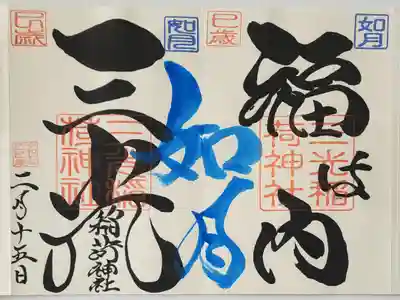 如月
福は内
三光稲荷神社
巳歳
如月
如月
三光
三光稲荷神社
稲荷神社
巳歳
二月十五日